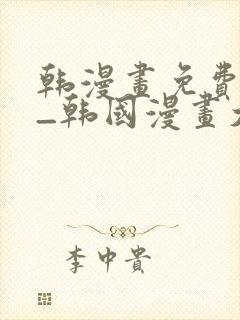 韩漫畫免費
–韩國漫畫大
李中貴